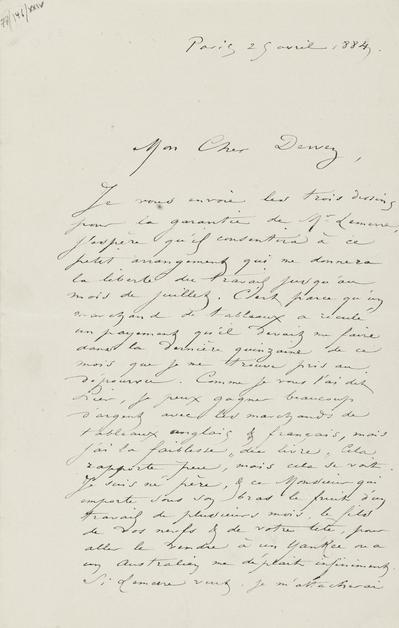 77/146/XXIV
Paris 25 avril 1884.
Mon Cher Dervez,
Je vous envoie les trois dessins
pour la garantie de Mr Lemerre,
j'espère qu'il consentira à ce
petit arrangement qui me donnera
la liberté du travail jusqu'au
mois de juillet. C'est parce qu'un
marchand de tableaux a reculé
un payement qu'il devait me faire
dans la dernière quinzaine de ce
mois que je me trouve pris au
dépourvu. Comme je vous l'ai dit
hier, je peux gagner beaucoup
d'argent avec les marchands de
tableaux anglais & français, mais
j'ai la faiblesse "du livre". Cela
rapporte peu, mais cela se voit.
Je suis né père, & ce Monsieur qui
emporte sous son bras le fruit d'un
travail de plusieurs mois, le filet
de vos nerfs & de votre tête, pour
aller le vendre à un Yankee ou a
un Australien me déplait infiniment.
Si Lemerre veut, je m'attacherai